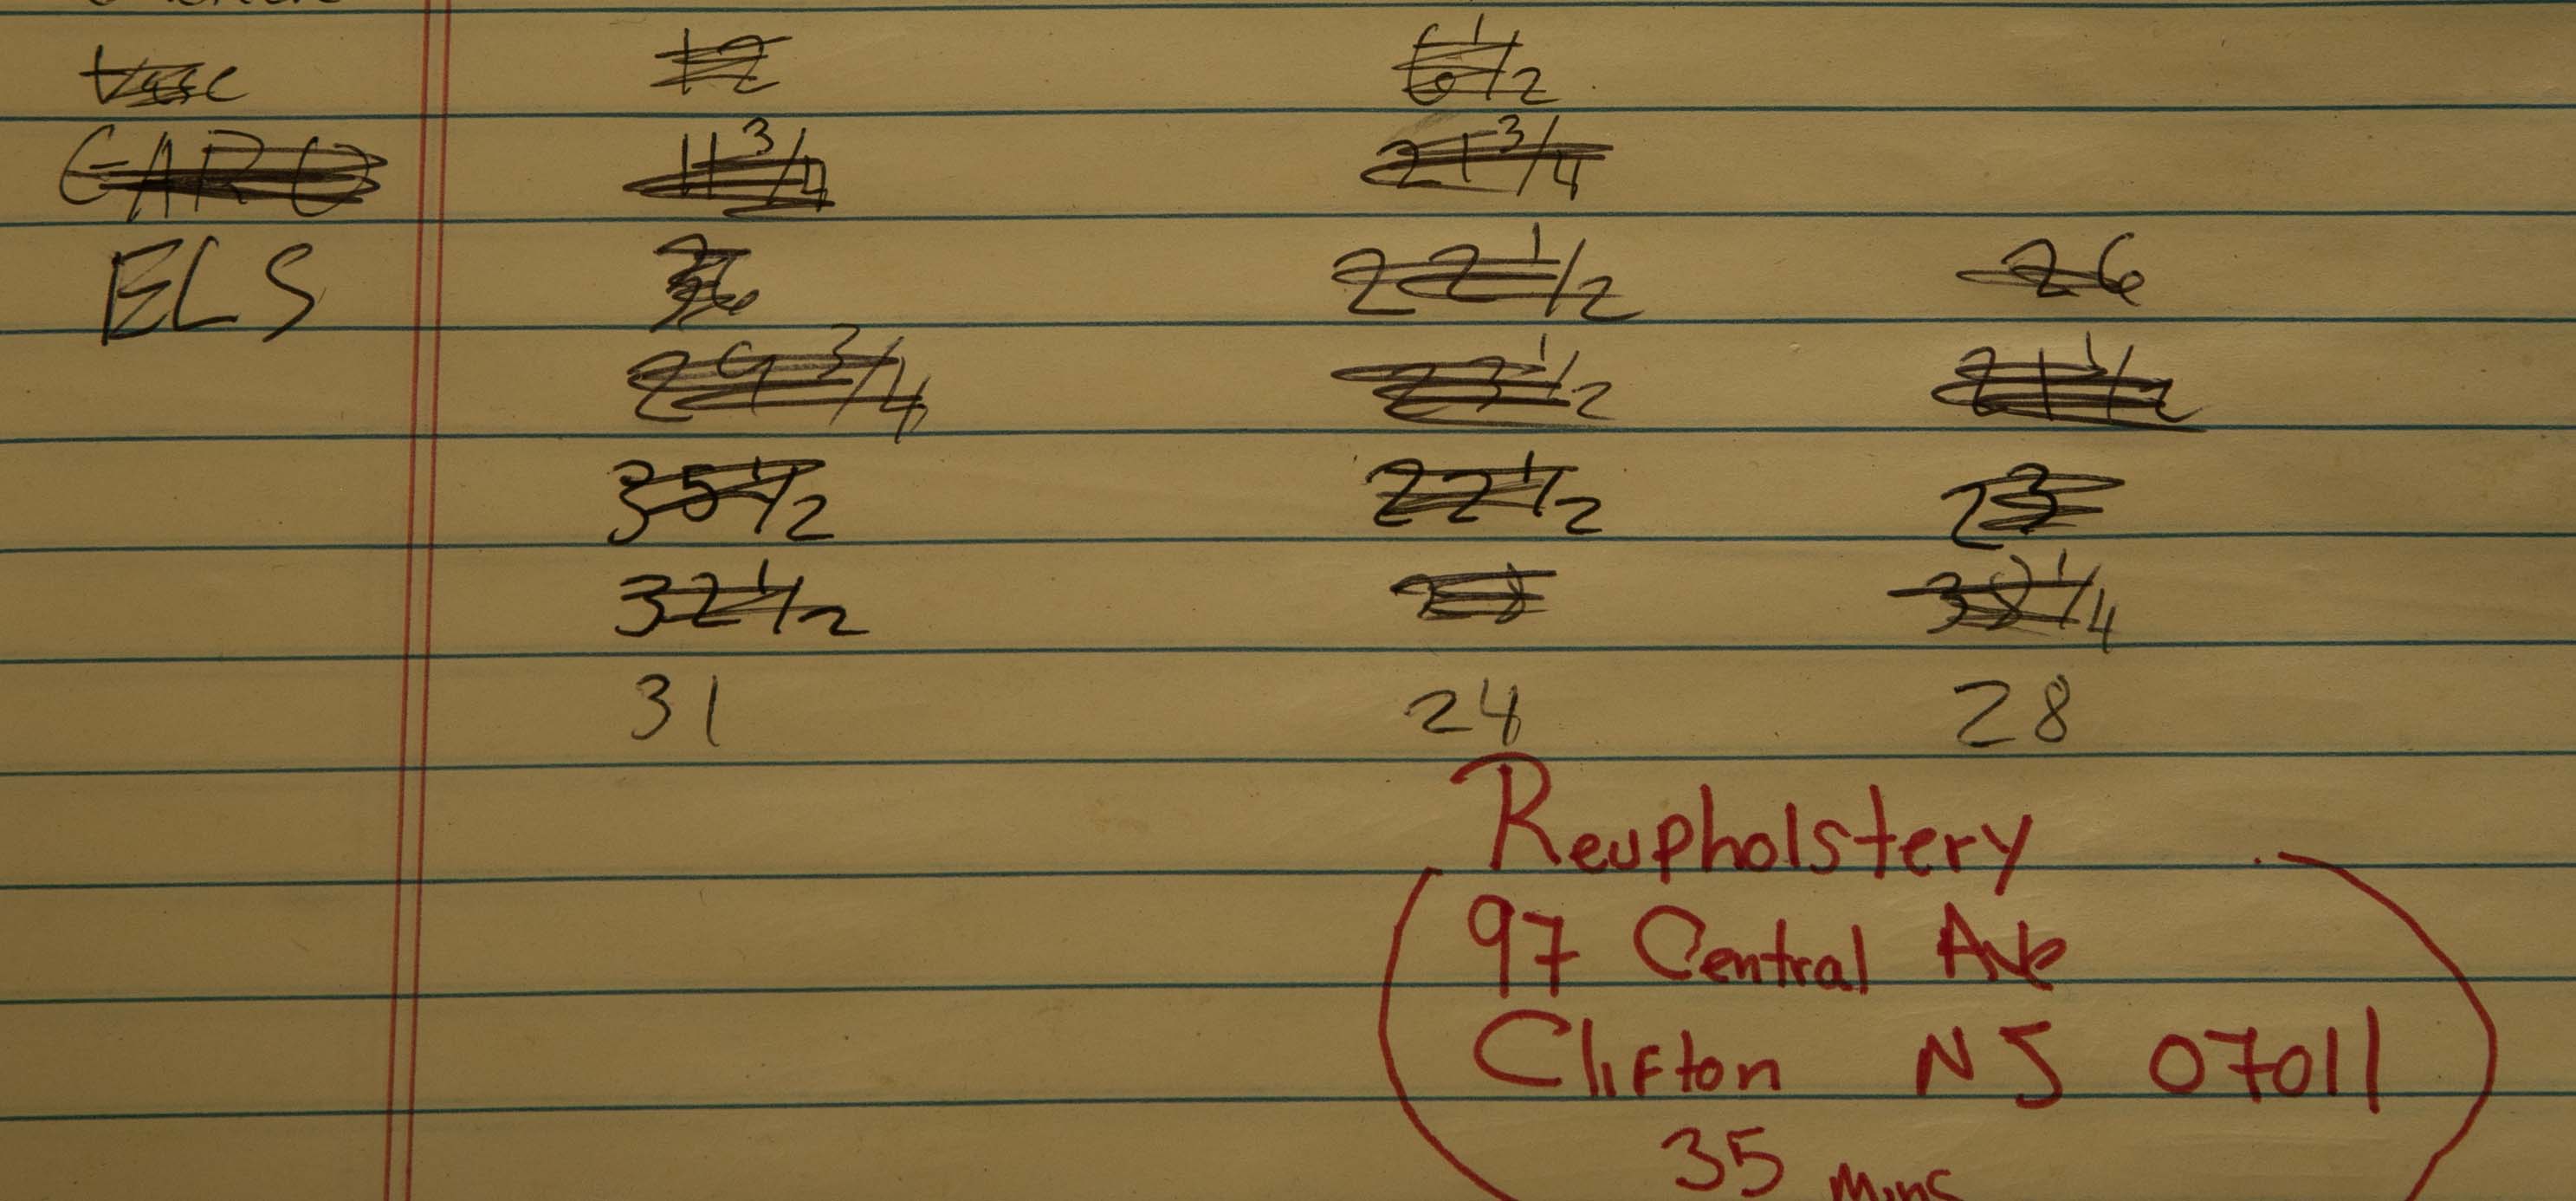 vase 12 6 1/2
GARO 11 3/4 21 3/4
ELS 22 1/2 26
29 3/4 23 1/2 21 1/2
35 1/2 22 1/2 23
32 1/2 38 1/4
31 24 28
Reupholstery
97 Central Ave
Clifton NJ 07011
35 mins